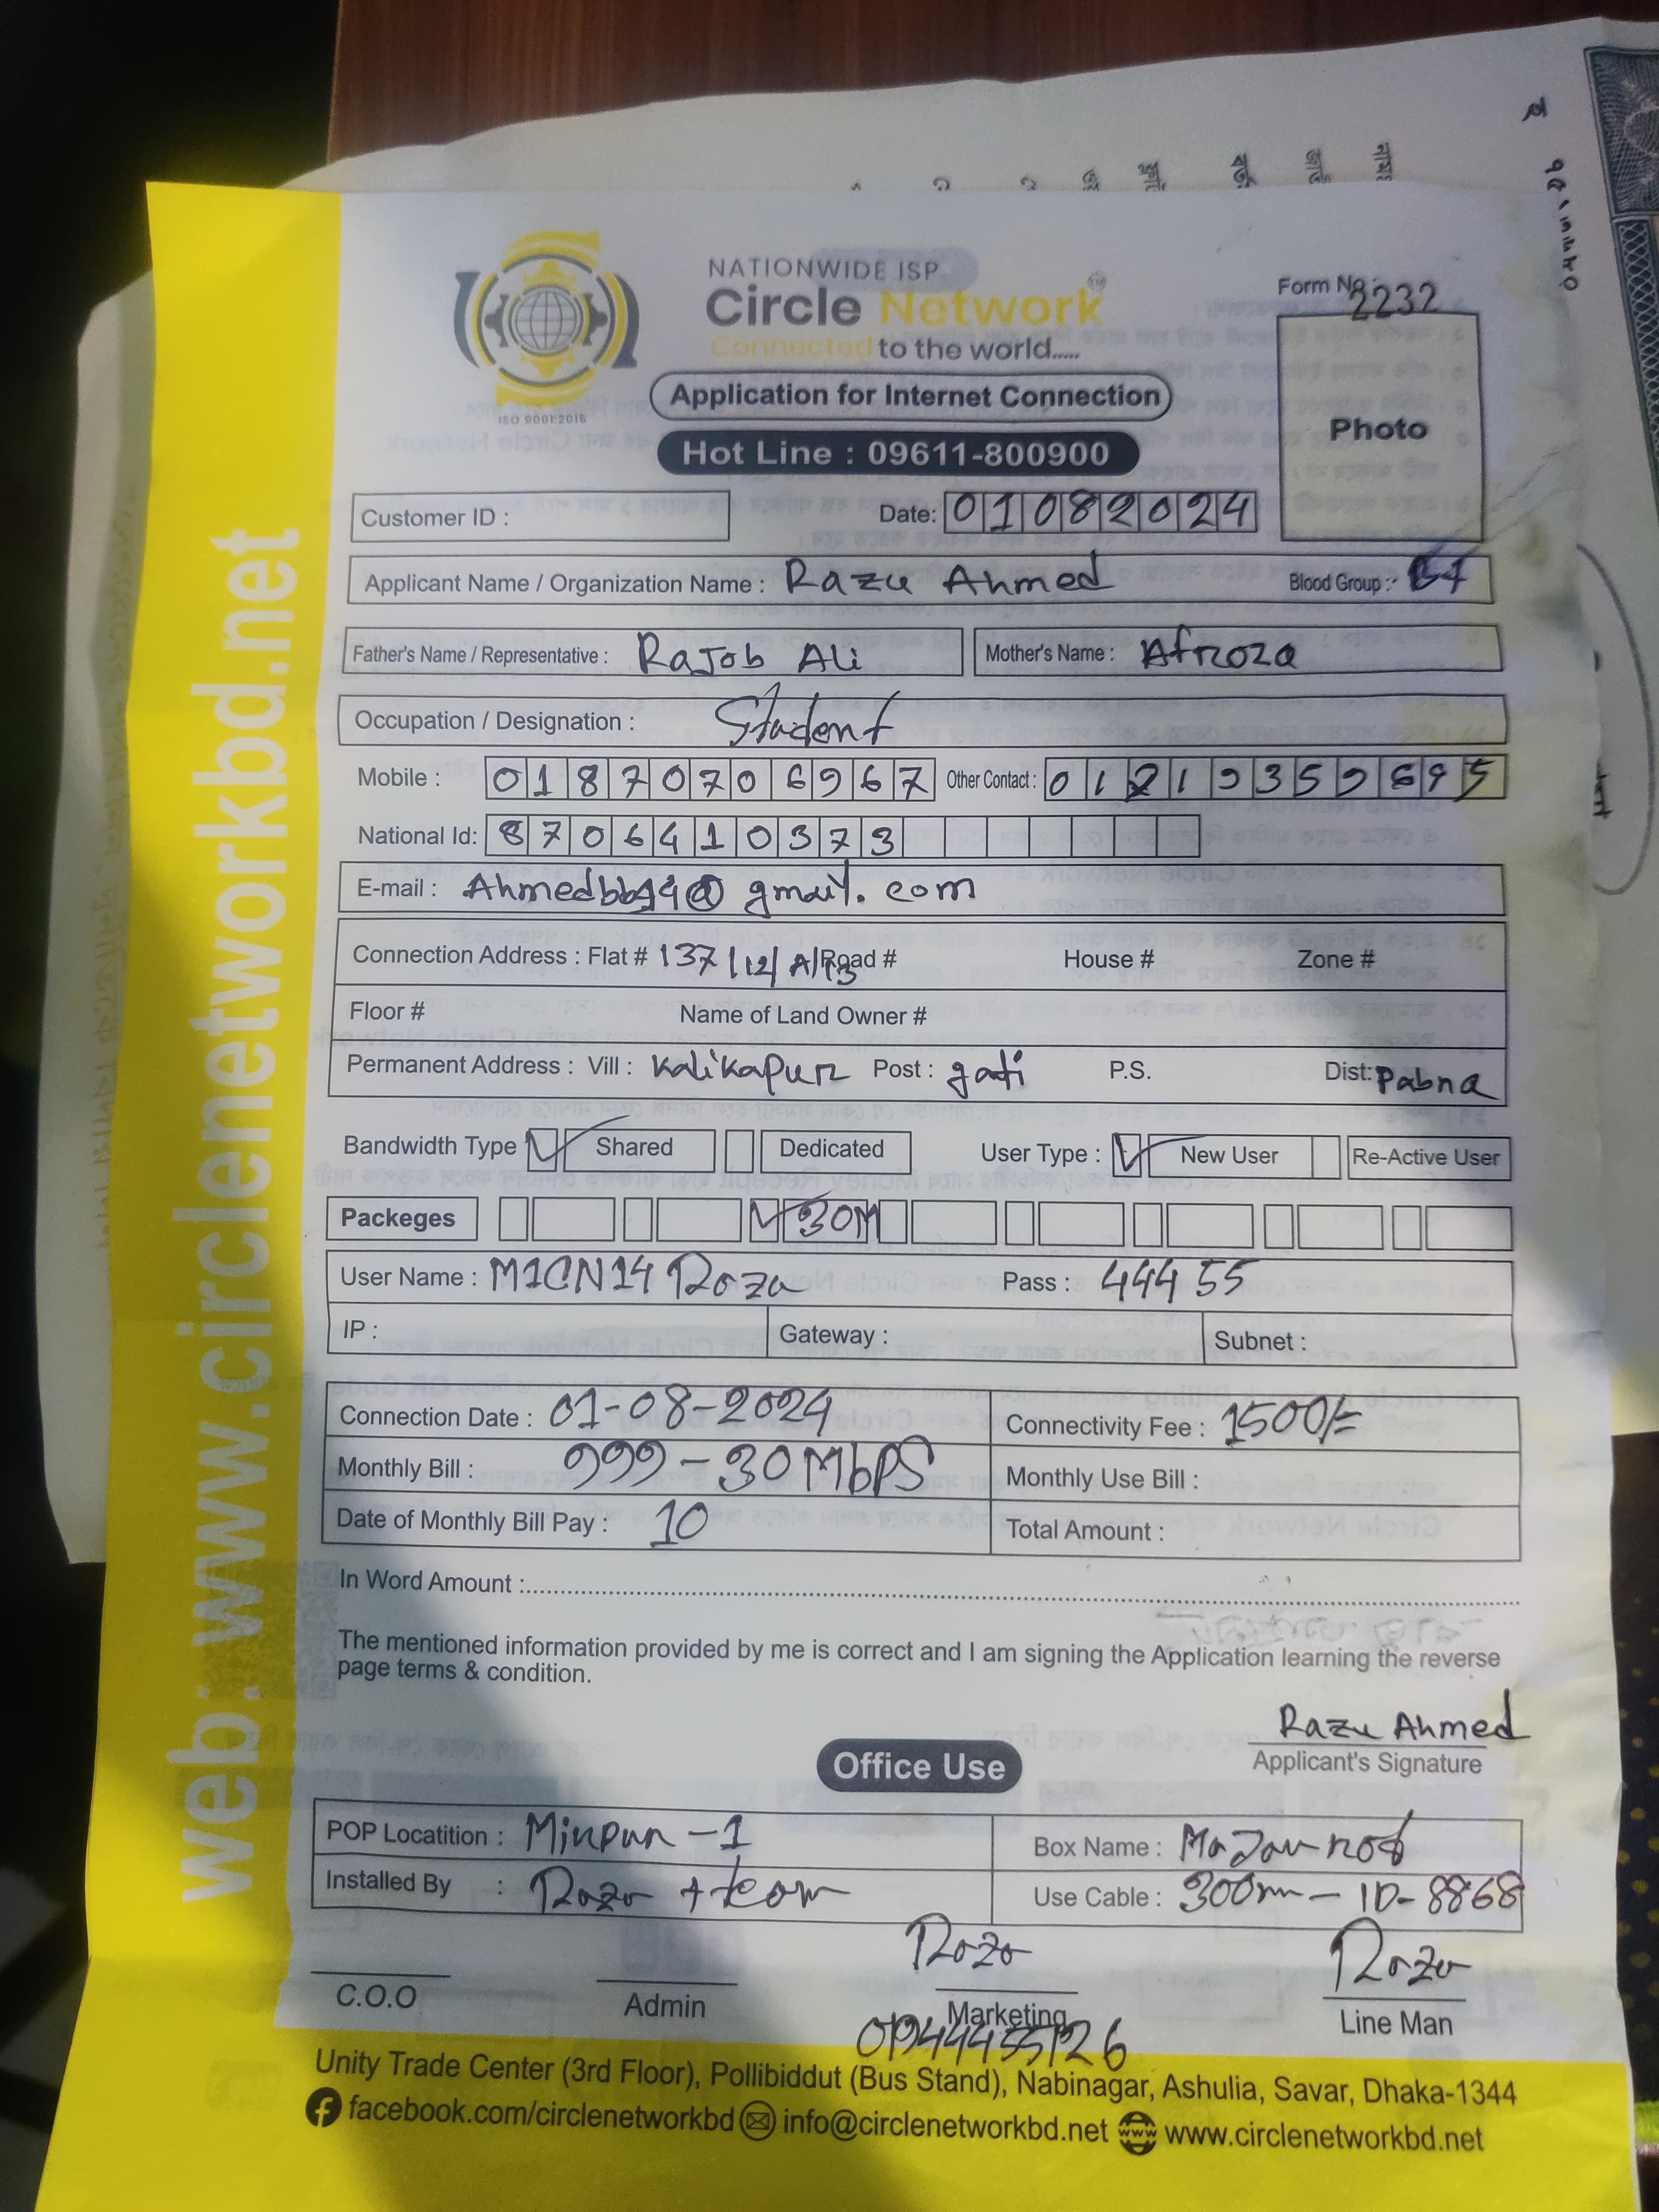 NATIONWIDE ISP
Circle Network TM
Connected to the world.....
ISO 9001:2015
Application for Internet Connection
Hot Line : 09611-800900
Form No 2232
Photo
Customer ID :
Date: 01082024
Applicant Name / Organization Name : Razu Ahmed Blood Group :- B+
Father's Name / Representative : Rajob Ali Mother's Name : Afroza
Occupation / Designation : Student
Mobile : 01870706967 Other Contact :
National Id: 8706410373
E-mail : @gmail.com
Connection Address : Flat # 137/12/A/13 Road # House # Zone #
Floor # Name of Land Owner #
Permanent Address : Vill : Kalikapur Post : gati P.S. Dist: Pabna
Bandwidth Type Shared Dedicated User Type : New User Re-Active User
Packeges 30M
User Name : M1CN14 Pass : 44455
IP : Gateway : Subnet :
Connection Date : 01-08-2024 Connectivity Fee : 1500/=
Monthly Bill : 999-30Mbps Monthly Use Bill :
Date of Monthly Bill Pay : 10 Total Amount :
In Word Amount :
The mentioned information provided by me is correct and I am signing the Application learning the reverse
page terms & condition.
Razu Ahmed
Applicant's Signature
Office Use
POP Locatition : Mirpur-1 Box Name :
Installed By : + team Use Cable : 300m - ID-8868
C.O.O Admin Marketing Line Man
Unity Trade Center (3rd Floor), Pollibiddut (Bus Stand), Nabinagar, Ashulia, Savar, Dhaka-1344
facebook.com/circlenetworkbd info@circlenetworkbd.net www.circlenetworkbd.net
web: www.circlenetworkbd.net